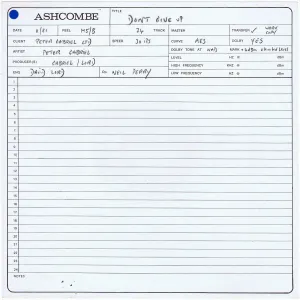 ASHCOMBE
TITLE
DON'T GIVE UP
DATE REEL M5/B 24 TRACK MASTER TRANSFER ✓ WORK COPY
CLIENT PETER GABRIEL LTD SPEED 30 IPS CURVE AES DOLBY YES
ARTIST PETER GABRIEL DOLBY TONE AT
PRODUCER(S) GABRIEL / LORD LEVEL HZ @ dBm
HIGH FREQUENCY KHZ @ dBm
ENG DAVID LORD NEIL PERRY LOW FREQUENCY HZ @ dBm
1
2
3
4
5
6
7
8
9
10
11
12
13
14
15
16
17
18
19
20
21
22
23
24
NOTES